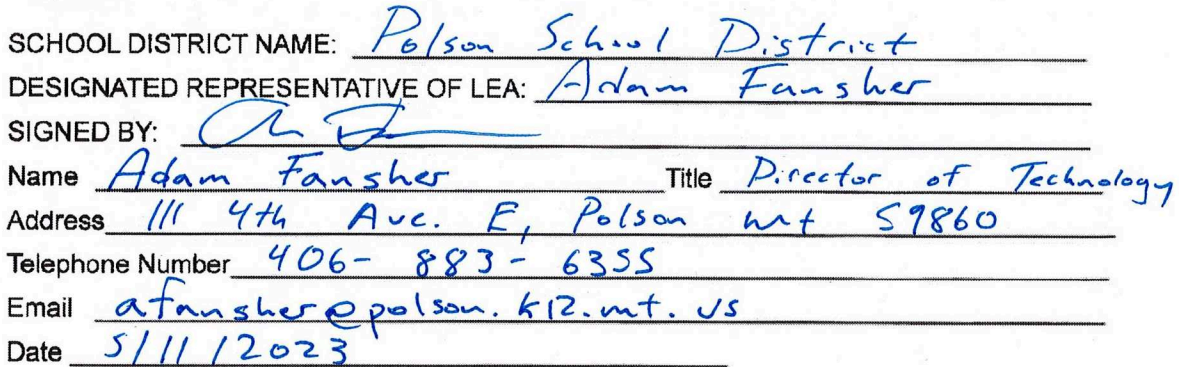 SCHOOL DISTRICT NAME: Polson School District
DESIGNATED REPRESENTATIVE OF LEA: Adam Fansher
SIGNED BY:
Name Adam Fansher Title Director of Technology
Address 111 4th Ave. E, Polson mt 59860
Telephone Number 406-883-6355
Email afansher@polson.k12.mt.us
Date 5/11/2023